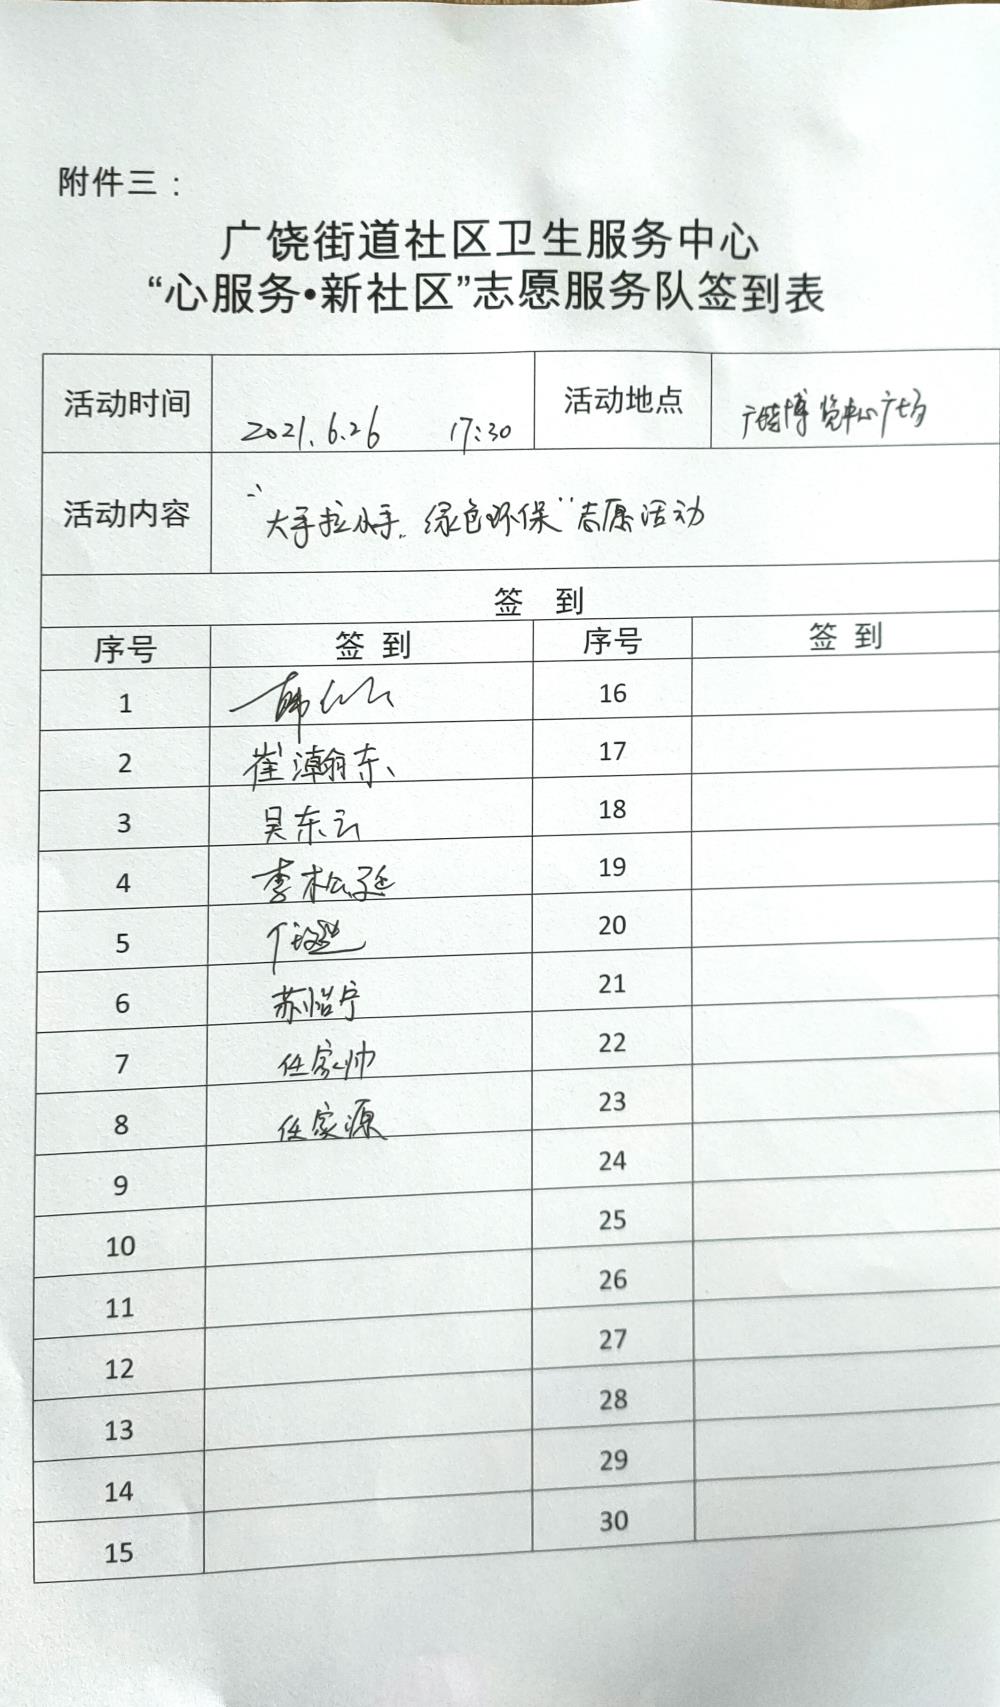 附件三：
广饶街道社区卫生服务中心
“心服务•新社区”志愿服务队签到表
活动时间 2021.6.26 17:30 活动地点 广饶博览中心广场
活动内容 “大手拉小手，绿色环保”志愿活动
签 到
序号 签 到 序号 签 到
1 韩 16
2 崔瀚东 17
3 吴东云 18
4 李松廷 19
5 20
6 苏怡宁 21
7 任家帅 22
8 任家源 23
9 24
10 25
11 26
12 27
13 28
14 29
15 30